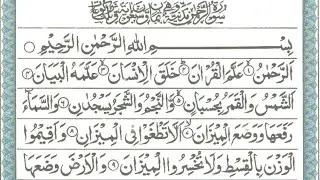 سُوْرَةُ الرَّحْمٰنِ مَدَنِيَّةٌ
بِسْمِ اللهِ الرَّحْمٰنِ الرَّحِيْمِ
اَلرَّحْمٰنُ ۙ۱ عَلَّمَ الْقُرْاٰنَ ؕ۲ خَلَقَ الْاِنْسَانَ ۙ۳ عَلَّمَهُ الْبَيَانَ ۴
اَلشَّمْسُ وَالْقَمَرُ بِحُسْبَانٍ ۵ وَّالنَّجْمُ وَالشَّجَرُ يَسْجُدٰنِ ۶ وَالسَّمَآءَ
رَفَعَهَا وَوَضَعَ الْمِيْزَانَ ۷ اَلَّا تَطْغَوْا فِى الْمِيْزَانِ ۸ وَاَقِيْمُوا
الْوَزْنَ بِالْقِسْطِ وَلَا تُخْسِرُوا الْمِيْزَانَ ۹ وَالْاَرْضَ وَضَعَهَا